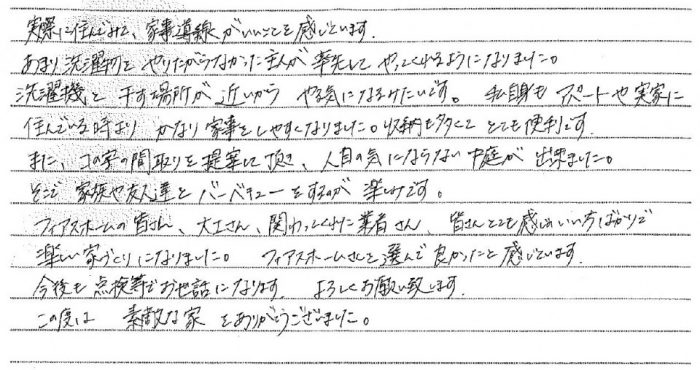 実際に住んでみて、家事導線がいいことを感じています。
あまり洗濯物をやりたがらなかった主人が率先してやってくれるようになりました。
洗濯機と干す場所が近いから やる気になるみたいです。私自身もアパートや実家に
住んでいる時より かなり家事をしやすくなりました。収納も多くて とても便利です。
また、コの字の間取りを提案して頂き、人目の気にならない中庭が 出来ました。
そこで 家族や友人達とバーベキューをするのが 楽しみです。
フィアスホームの皆さん、大工さん、関わってくれた業者さん、皆さんとても感じのいい方ばかりで
楽しい家づくりになりました。 フィアスホームさんを選んで良かったと感じています。
今後も 点検等でお世話になります。 よろしくお願い致します。
この度は 素敵な家 をありがとうございました。